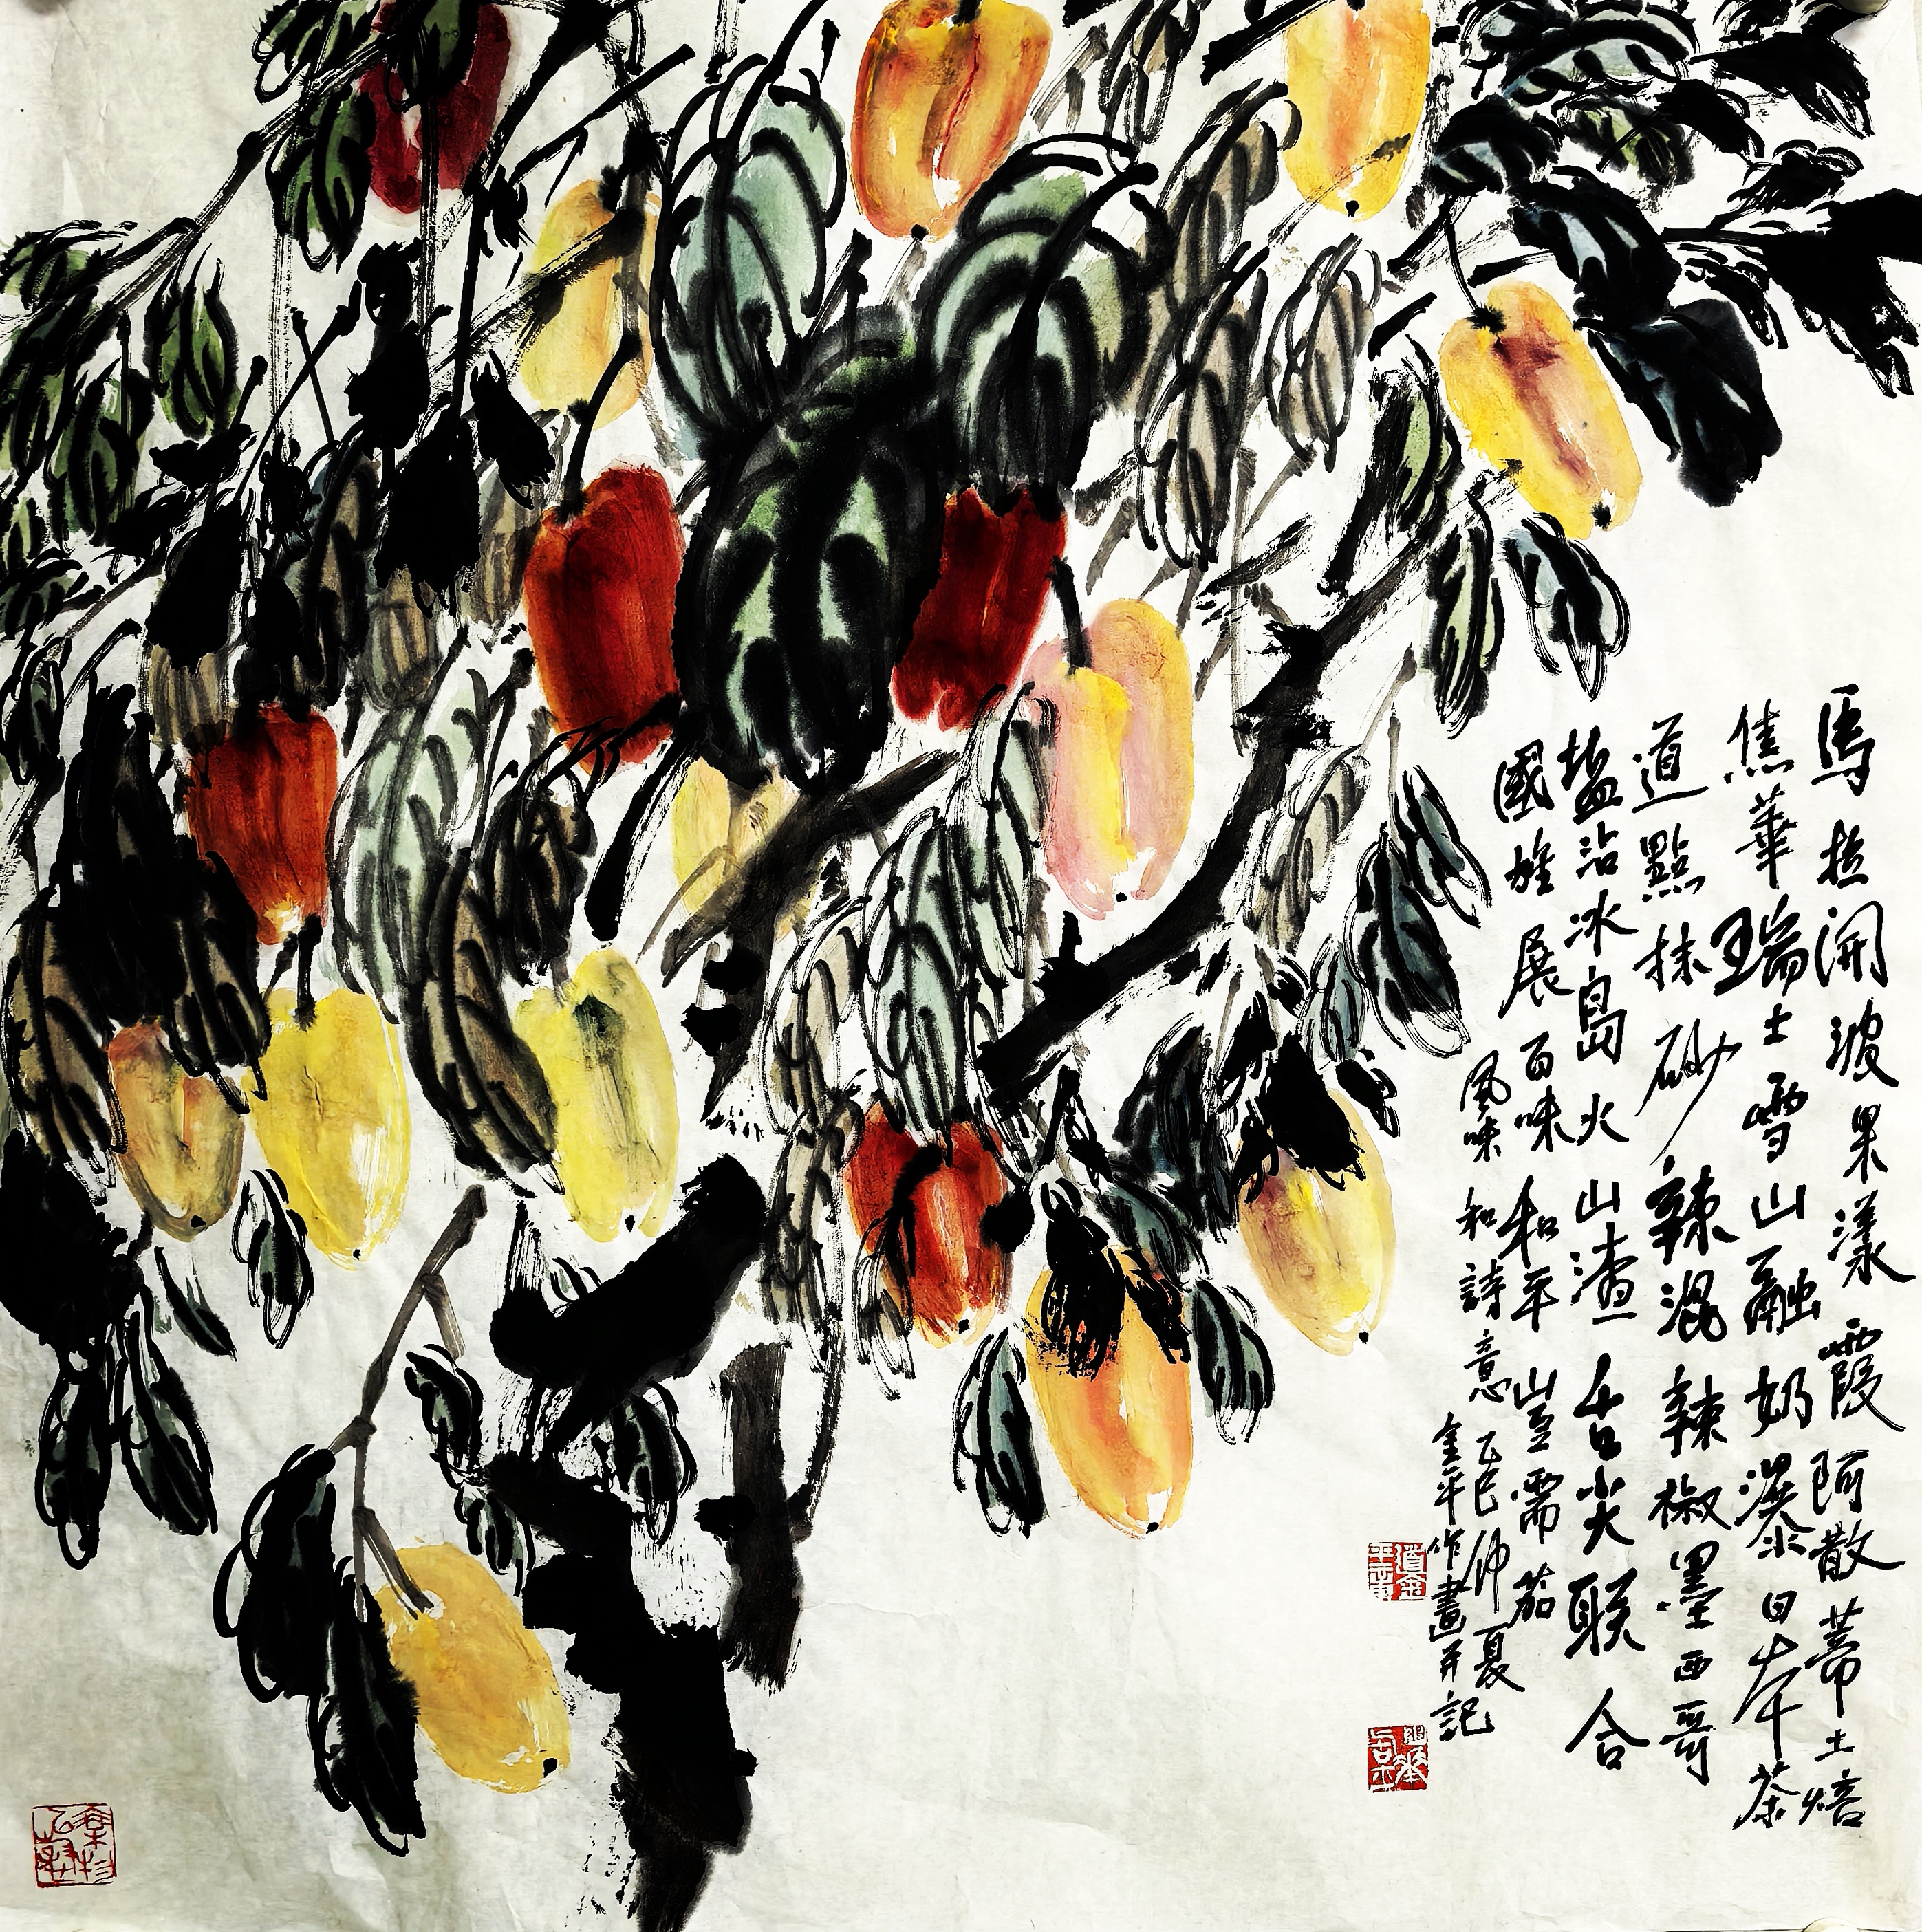 馬拉開波果漾霞阿散蒂土焙
焦華瑞士雪山融奶瀑日本茶
道點抹砂辣混辣椒墨西哥
塩沾冰島火山渣舌尖联合
國旌展百味和平豈需茄
風味和詩意 乙巳仲夏
金平作畫并記